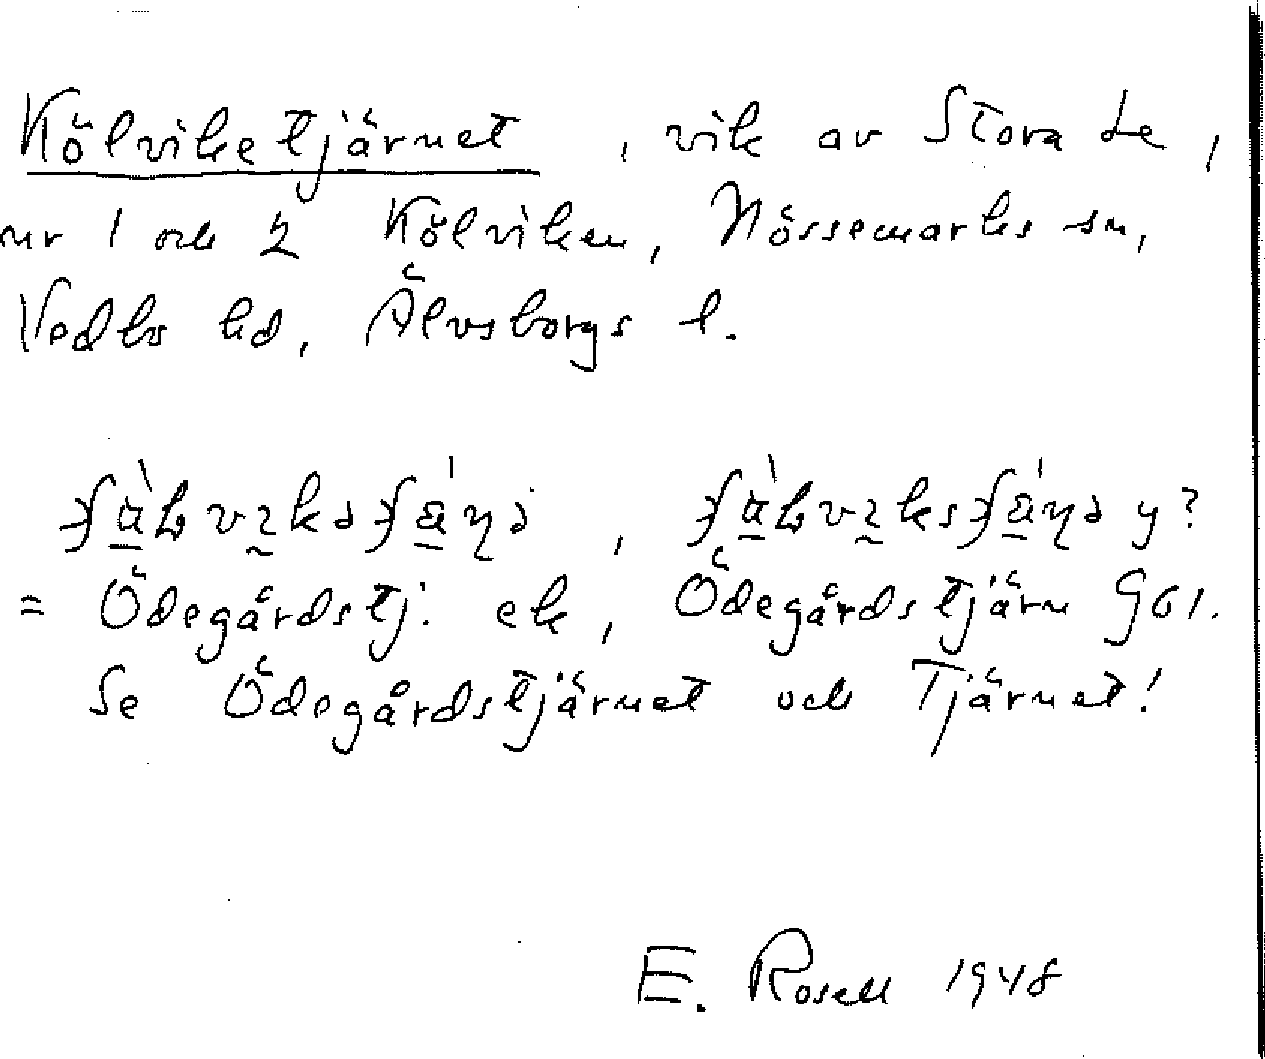 Kölviketjärnet, vik av Stora Le,
nr 1 och 2 Kölviken, Nössemarks sn,
Vedbo hd, Älvsborgs l.
y?
= Ödegårdstj. ek, Ödegårdstjärn G61.
Se Ödegårdstjärnet och Tjärnet!
E. Rosell 1948